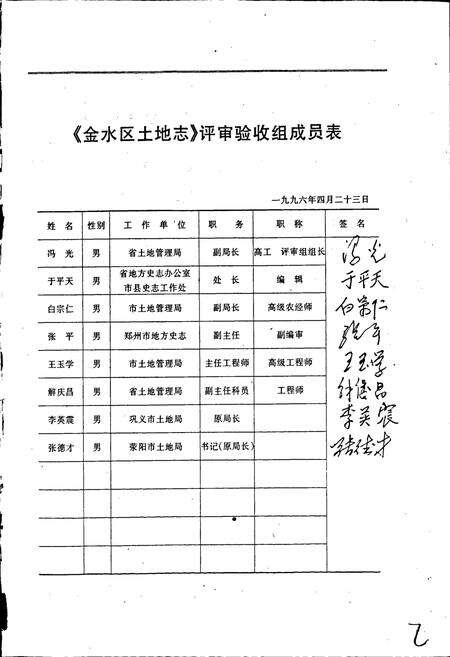 《金水区土地志》评审验收组成员表
一九九六年四月二十三日
姓名 性别 工作单位 职务 职称 签名
冯光 男 省土地管理局 副局长 高工 评审组组长 冯光
于平天 男 省地方史志办公室 市县史志工作处 处长 编辑 于平天
白宗仁 男 市土地管理局 副局长 高级农经师 白宗仁
张平 男 郑州市地方史志 副主任 副编审 张平
王玉学 男 市土地管理局 主任工程师 高级工程师 王玉学
解庆昌 男 省土地管理局 副主任科员 工程师
李英震 男 巩义市土地局 原局长 李英震
张德才 男 荥阳市土地局 书记(原局长) 张德才